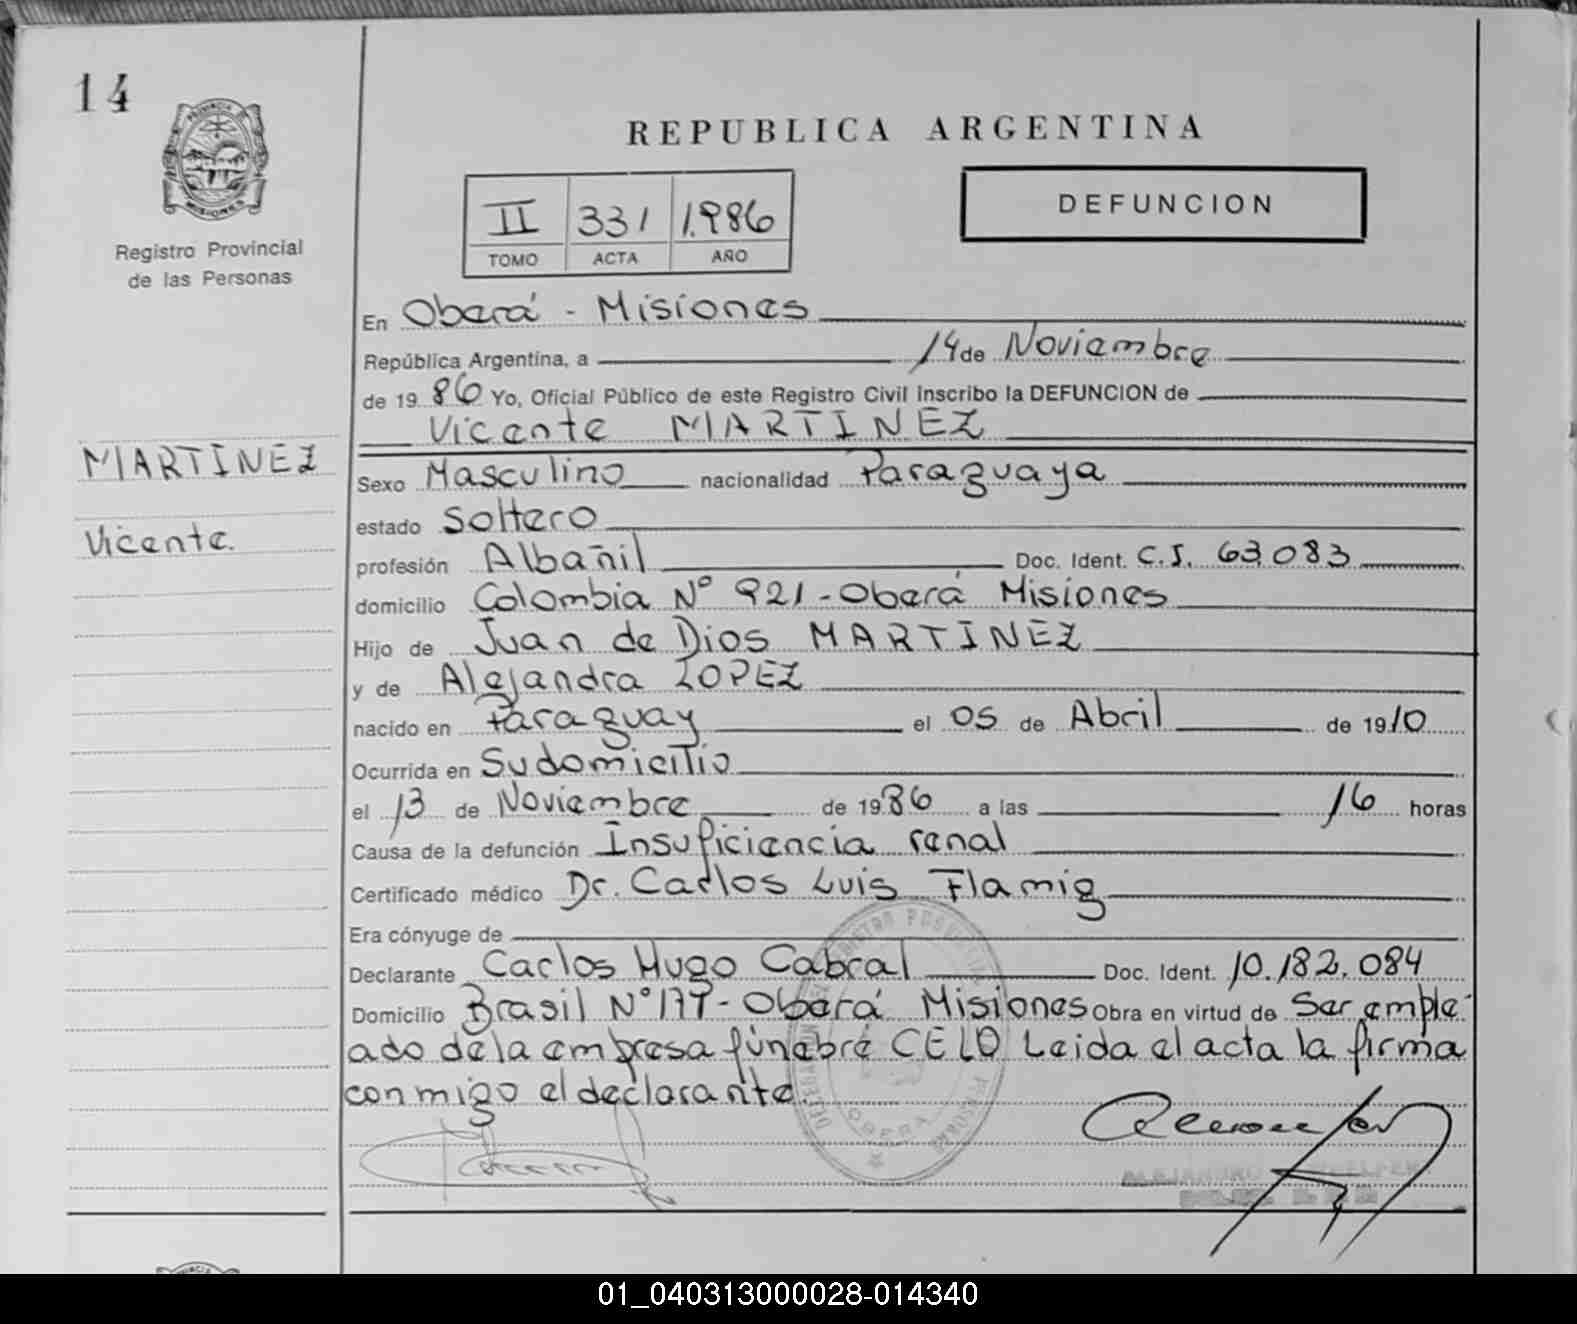 14
PROVINCIA
MISIONES
Registro Provincial
de las Personas
MARTINEZ
Vicente.
REPUBLICA ARGENTINA
II 331 1.986
TOMO ACTA AÑO
DEFUNCION
En Oberá - Misiones
República Argentina, a 14 de Noviembre
de 19 86 Yo, Oficial Público de este Registro Civil Inscribo la DEFUNCION de
Vicente MARTINEZ
Sexo Masculino nacionalidad Paraguaya
estado Soltero
profesión Albañil Doc. Ident. C.I. 63.083
domicilio Colombia Nº 921 - Oberá Misiones
Hijo de Juan de Dios MARTINEZ
y de Alejandra LOPEZ
nacido en Paraguay el 05 de Abril de 1910
Ocurrida en Su domicilio
el 13 de Noviembre de 1986 a las 16 horas
Causa de la defunción Insuficiencia renal
Certificado médico Dr. Carlos Luis Flamig
Era cónyuge de
Declarante Carlos Hugo Cabral Doc. Ident. 10.182.084
Domicilio Brasil Nº 177 - Oberá Misiones Obra en virtud de Ser emple-
ado de la empresa fúnebre CELO Leida el acta la firma
conmigo el declarante.
OBERA
01_040313000028-014340